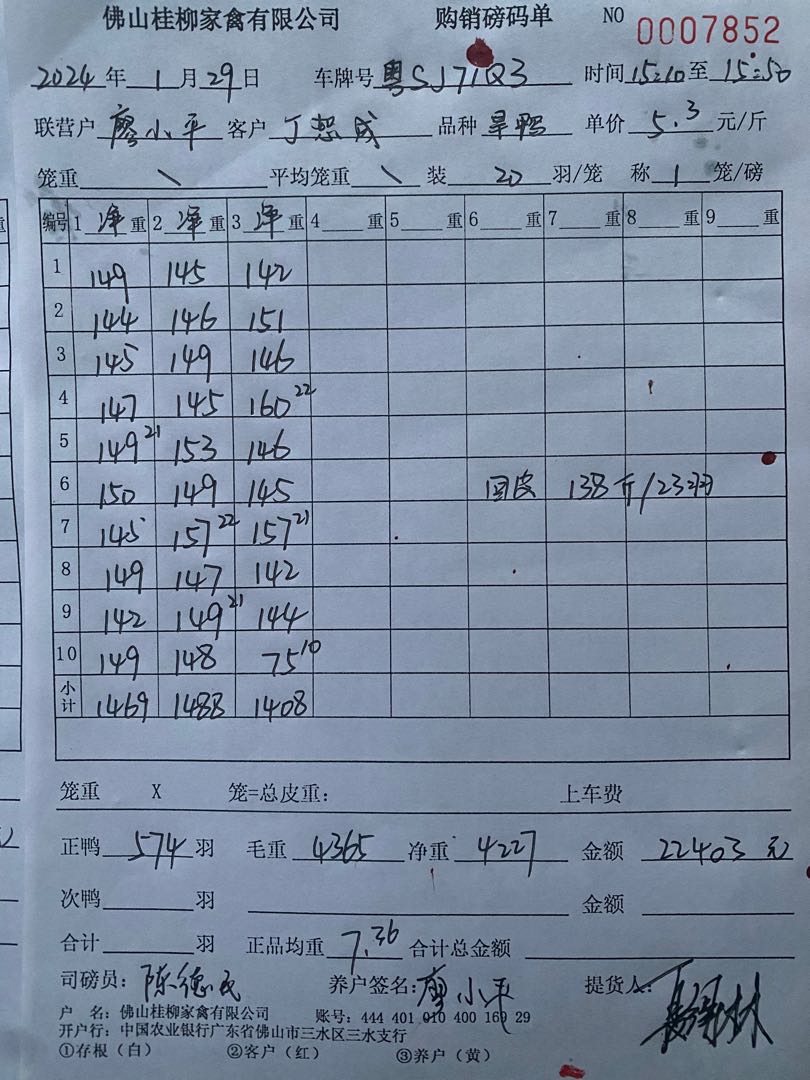 佛山桂柳家禽有限公司 购销磅码单 NO 0007852
2024年1月29日 车牌号 粤SJ71Q3 时间15:10至15:50
联营户 廖小平 客户 丁想成 品种 旱鸭 单价 5.3 元/斤
笼重 \ 平均笼重 \ 装 20 羽/笼 称 1 笼/磅
编号 1 净 重 2 净 重 3 净 重 4 重 5 重 6 重 7 重 8 重 9 重
1 149 145 142
2 144 146 151
3 145 149 146
4 147 145 160 22
5 149 21 153 146
6 150 149 145 回皮 138斤/23羽
7 145 157 22 157 21
8 149 147 142
9 142 149 21 144
10 149 148 75 10
小计 1469 1488 1408
笼重 X 笼=总皮重: 上车费
正鸭 574 羽 毛重 4365 净重 4227 金额 22403元
次鸭 羽 金额
合计 羽 正品均重 7.36 合计总金额
司磅员: 陈德民 养户签名: 廖小平 提货人:
户 名: 佛山桂柳家禽有限公司 账号: 444 401 010 400 160 29
开户行: 中国农业银行广东省佛山市三水区三水支行
①存根(白) ②客户(红) ③养户(黄)